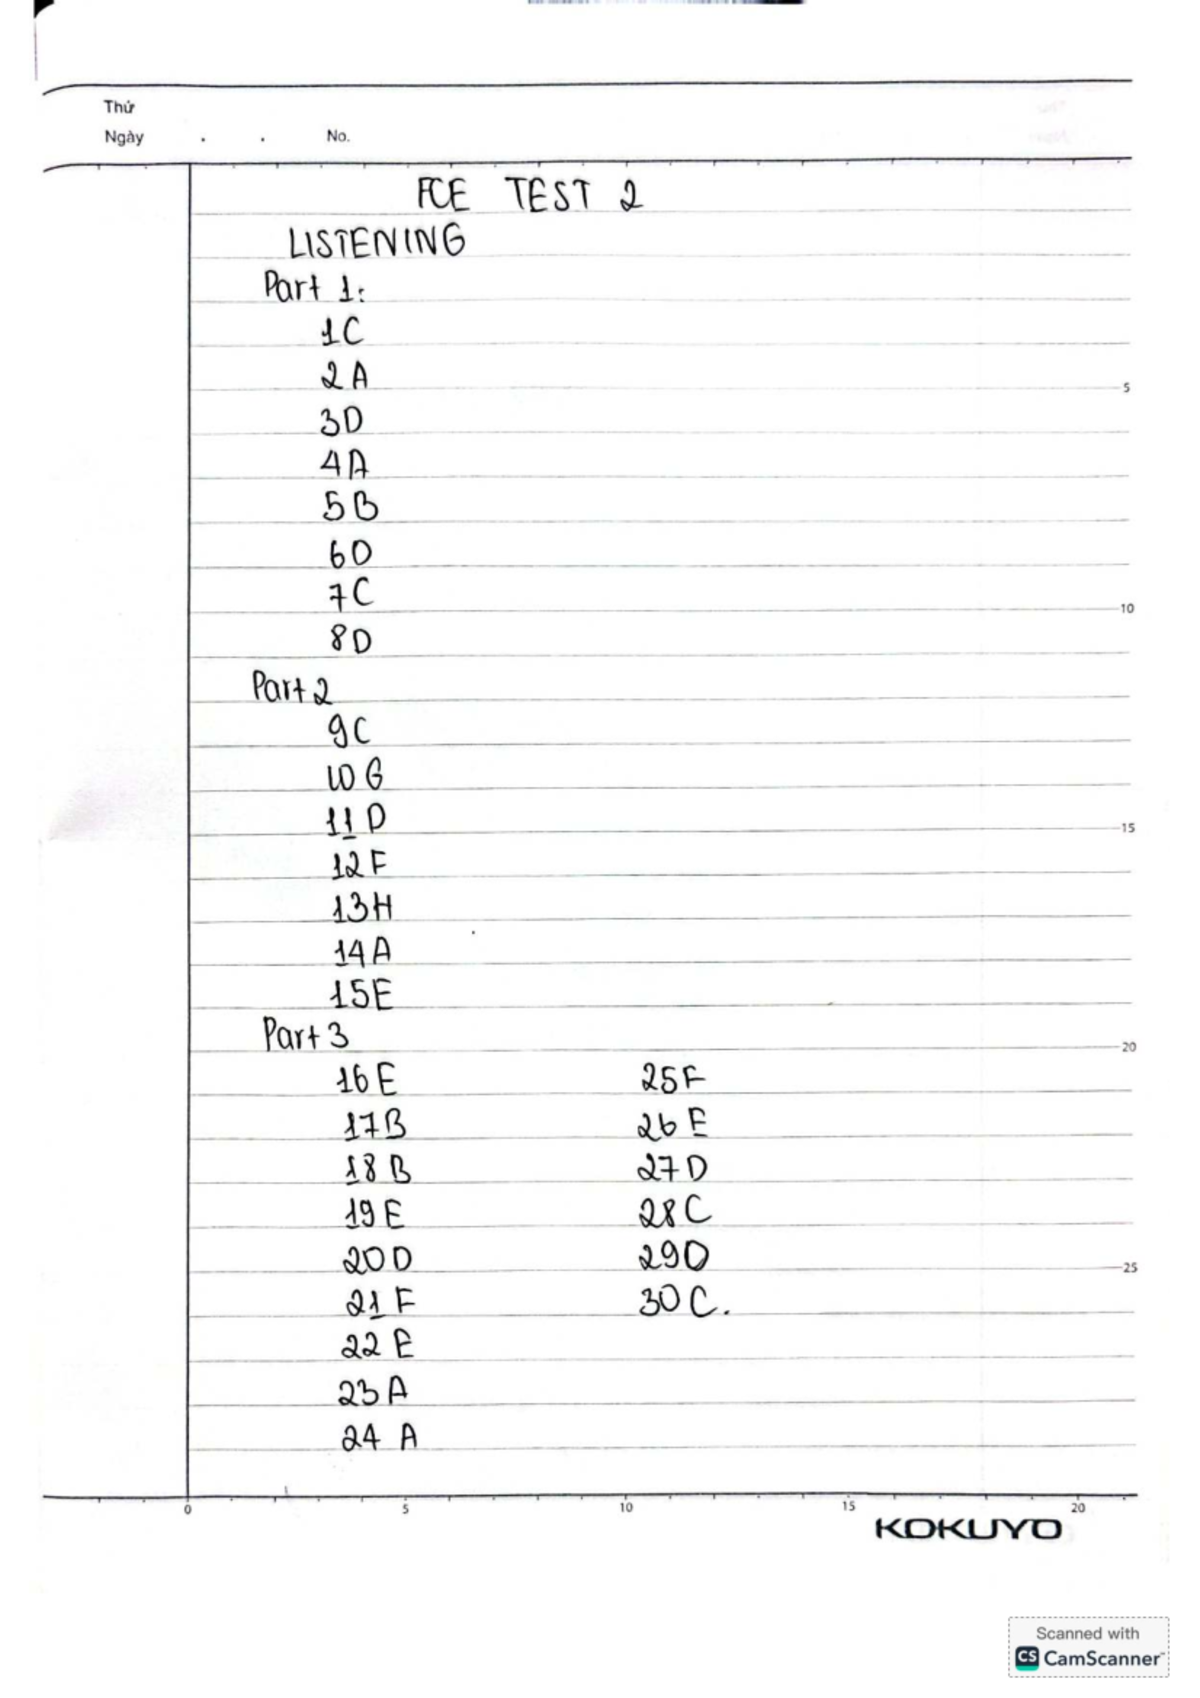 Thứ
Ngày . . No.
FCE TEST 2
LISTENING
Part 1:
1C
2A
3D
4A
5B
6D
7C
8D
Part 2
9C
10G
11D
12F
13H
14A
15E
Part 3
16E 25F
17B 26E
18B 27D
19E 28C
20D 29D
21F 30C.
22E
23A
24 A
5
10
15
20
25
0 5 10 15 20
KOKUYO
Scanned with
CS CamScanner